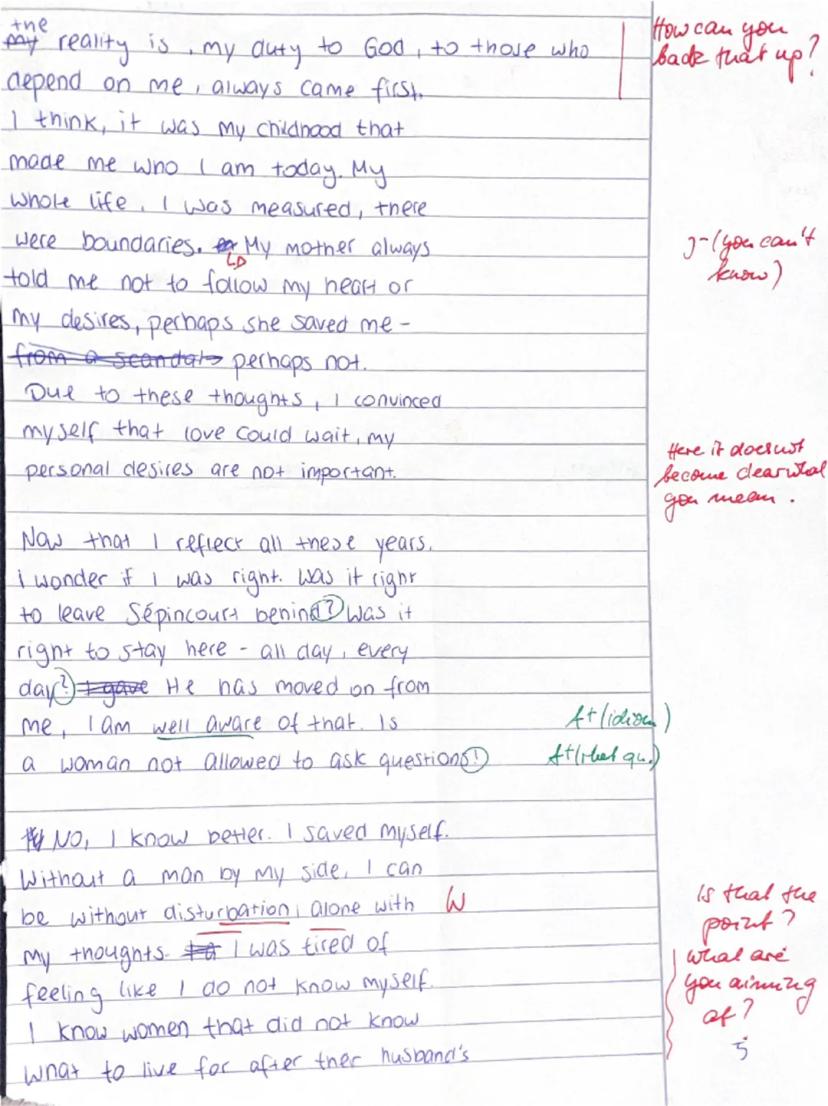 the
my reality is, my duty to God, to those who
depend on me, always came first.
How can you
back that up?
I think, it was my childhood that
made me who I am today. My
whole life, I was measured, there
were boundaries. My mother always
told me not to follow my heart or
my desires, perhaps she saved me -
from a scandal perhaps not.
(you can't
know)
Due to these thoughts, I convinced
myself that love could wait, my
personal desires are not important.
Here it does not
become clear what
you mean.
Now that I reflect all these years,
i wonder if I was right. Was it right
to leave Sépincourt behind? Was it
right to stay here - all day, every
day? I gave He has moved on from
me, I am well aware of that. Is
a woman not allowed to ask questions?
A+ (idiom)
A+ (rhet qu.)
No, I know better. I saved myself.
Without a man by my side, I can
be without disturbation, alone with
W
my thoughts. I was tired of
feeling like I do not know myself.
I know women that did not know
what to live for after ther husband's
is that the
point?
what are
you aiming
at?
5